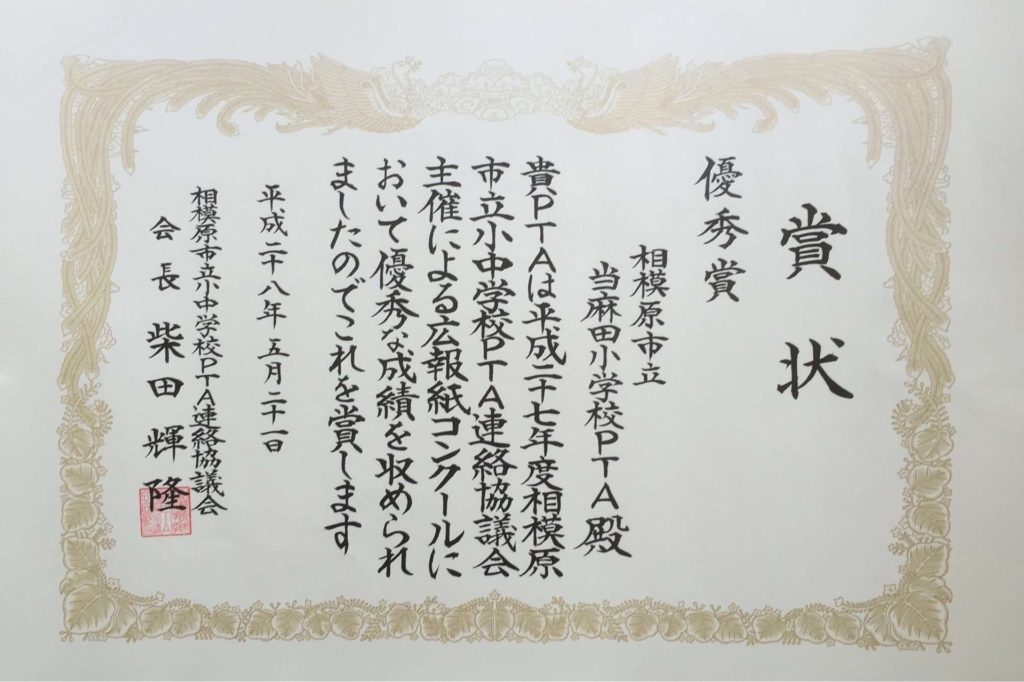 賞状
優秀賞
相模原市立
当麻田小学校PTA殿
貴PTAは平成二十七年度相模原
市立小中学校PTA連絡協議会
主催による広報紙コンクールに
おいて優秀な成績を収められ
ましたのでこれを賞します
平成二十八年五月二十一日
相模原市立小中学校PTA連絡協議会
会長 柴田輝隆